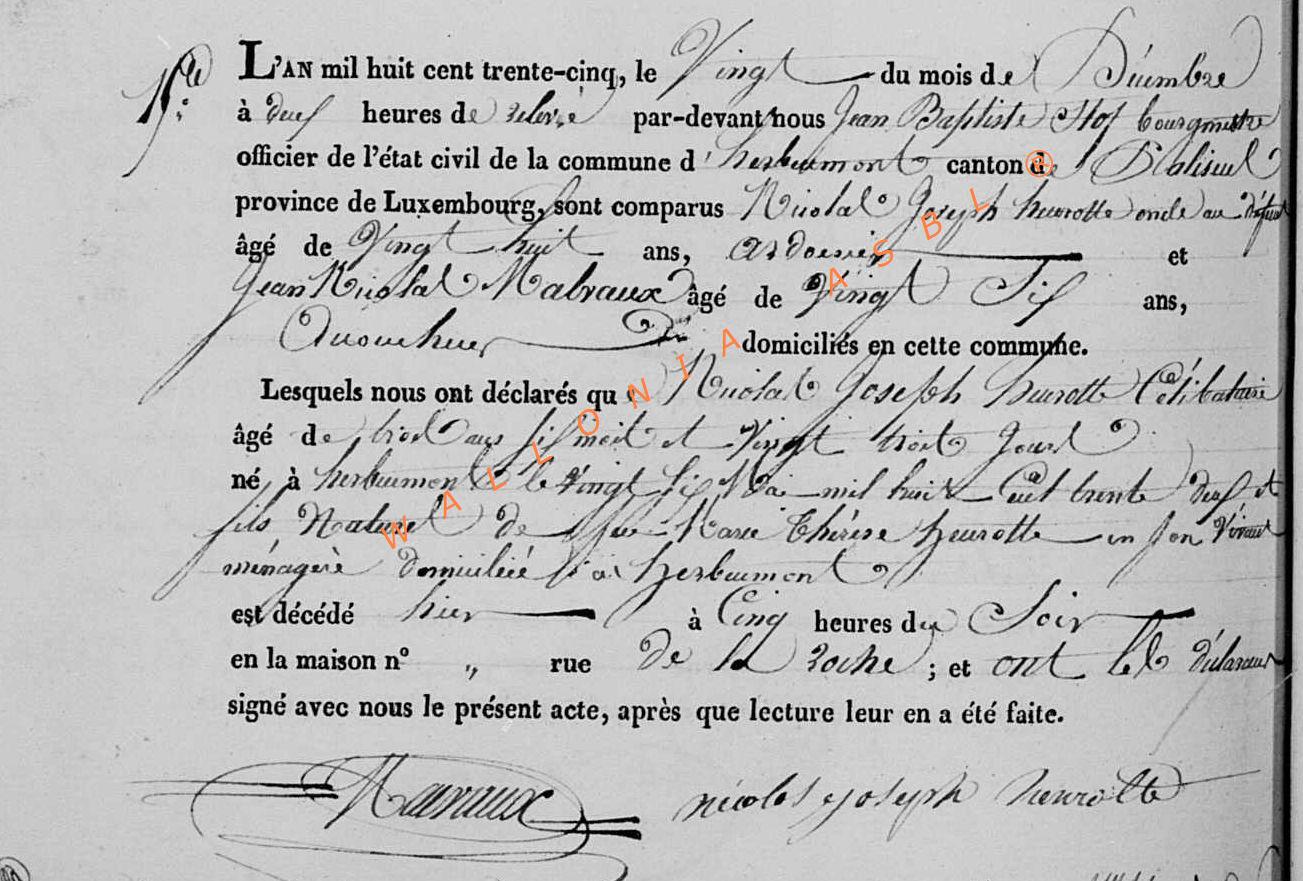 L'AN mil huit cent trente-cinq, le Vingt du mois de Décembre
à deux heures de relevée par-devant nous Jean Baptiste Hof bourgmestre
officier de l'état civil de la commune d'herbeumont canton de Paliseul
province de Luxembourg, sont comparus Nicolas Joseph heurotte oncle au défunt
âgé de Vingt huit ans, ardoisier et
Jean Nicolas Mavraux âgé de Vingt Six ans,
domiciliés en cette commune.
Lesquels nous ont déclarés que Nicolas Joseph heurotte Célibataire
âgé de trois ans six mois et vingt trois jours
né à herbeumont le vingt six Mai mil huit Cent trente deux et
fils Naturel de feue Marie thérèse heurotte en son Vivant
ménagère domiciliée à herbeumont
est décédé hier à Cinq heures du Soir
en la maison n° „ rue de la roche ; et ont les déclarants
signé avec nous le présent acte, après que lecture leur en a été faite.
Mavraux nicolas joseph heurotte
WALLONIA ASBL ®